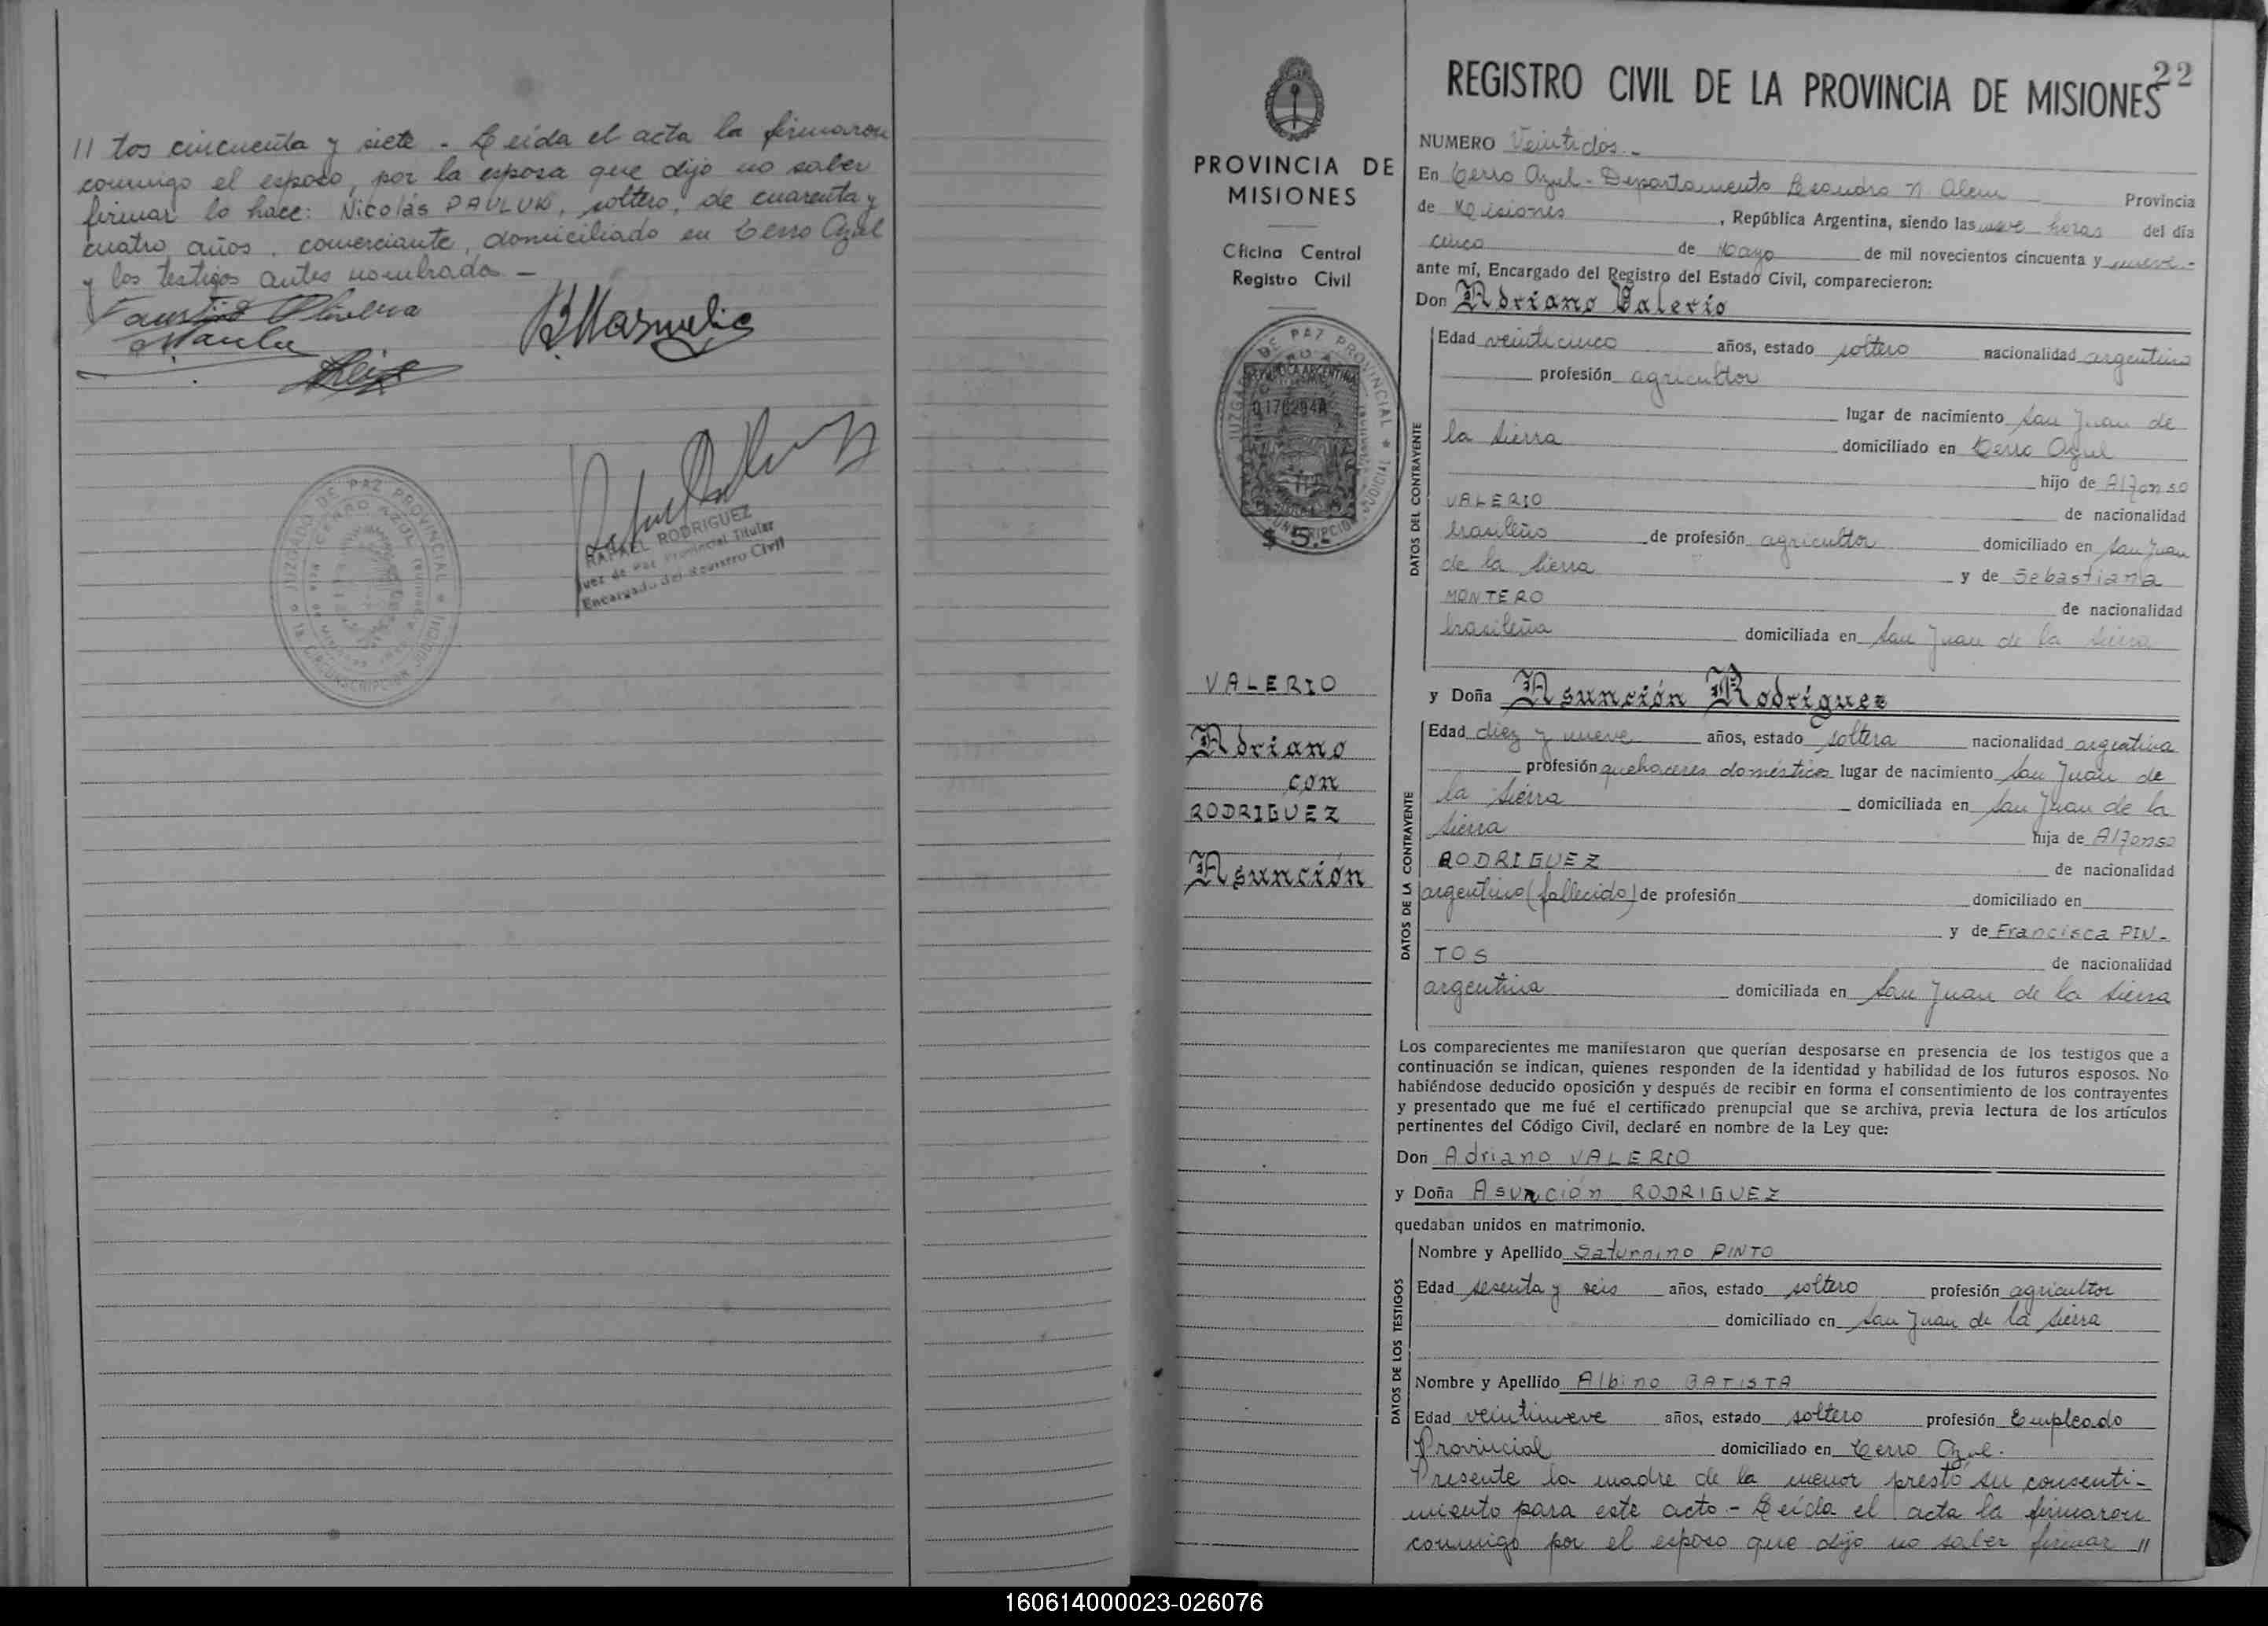 // tos cincuenta y siete - Leída el acta la firmaron
conmigo el esposo, por la esposa que dijo no saber
firmar lo hace: Nicolás PAULUK, soltero, de cuarenta y
cuatro años, comerciante, domiciliado en Cerro Azul
y los testigos antes nombrados -
RAFAEL RODRIGUEZ
Juez de Paz Provincial Titular
Encargado del Registro Civil
22
REGISTRO CIVIL DE LA PROVINCIA DE MISIONES
PROVINCIA DE
MISIONES
Oficina Central
Registro Civil
JUZGADO DE PAZ PROVINCIAL
REPUBLICA ARGENTINA
$ 5.-
VALERIO
Adriano
con
RODRIGUEZ
Asunción
NUMERO Veintidos -
En Cerro Azul - Departamento Leandro N. Alem Provincia
de Misiones, República Argentina, siendo las nueve horas del día
cinco de Mayo de mil novecientos cincuenta y nueve -
ante mí, Encargado del Registro del Estado Civil, comparecieron:
Don Adriano Valerio
DATOS DEL CONTRAYENTE
Edad veinticinco años, estado soltero nacionalidad argentino
profesión agricultor
lugar de nacimiento San Juan de
la Sierra domiciliado en Cerro Azul
hijo de Alfonso
VALERIO de nacionalidad
brasileño de profesión agricultor domiciliado en San Juan
de la Sierra y de Sebastiana
MONTERO de nacionalidad
brasileña domiciliada en San Juan de la Sierra
y Doña Asunción Rodríguez
DATOS DE LA CONTRAYENTE
Edad diez y nueve años, estado soltera nacionalidad argentina
profesión quehaceres domésticos lugar de nacimiento San Juan de
la Sierra domiciliada en San Juan de la
Sierra hija de Alfonso
RODRIGUEZ de nacionalidad
argentino (fallecido) de profesión domiciliado en
y de Francisca PIN-
TOS de nacionalidad
argentina domiciliada en San Juan de la Sierra
Los comparecientes me manifestaron que querían desposarse en presencia de los testigos que a
continuación se indican, quienes responden de la identidad y habilidad de los futuros esposos. No
habiéndose deducido oposición y después de recibir en forma el consentimiento de los contrayentes
y presentado que me fué el certificado prenupcial que se archiva, previa lectura de los artículos
pertinentes del Código Civil, declaré en nombre de la Ley que:
Don Adriano VALERIO
y Doña Asunción RODRIGUEZ
quedaban unidos en matrimonio.
DATOS DE LOS TESTIGOS
Nombre y Apellido Saturnino PINTO
Edad sesenta y seis años, estado soltero profesión agricultor
domiciliado en San Juan de la Sierra
Nombre y Apellido Albino BATISTA
Edad veintinueve años, estado soltero profesión Empleado
Provincial domiciliado en Cerro Azul.
Presente la madre de la menor prestó su consenti-
miento para este acto - Leída el acta la firmaron
conmigo por el esposo que dijo no saber firmar //
160614000023-026076